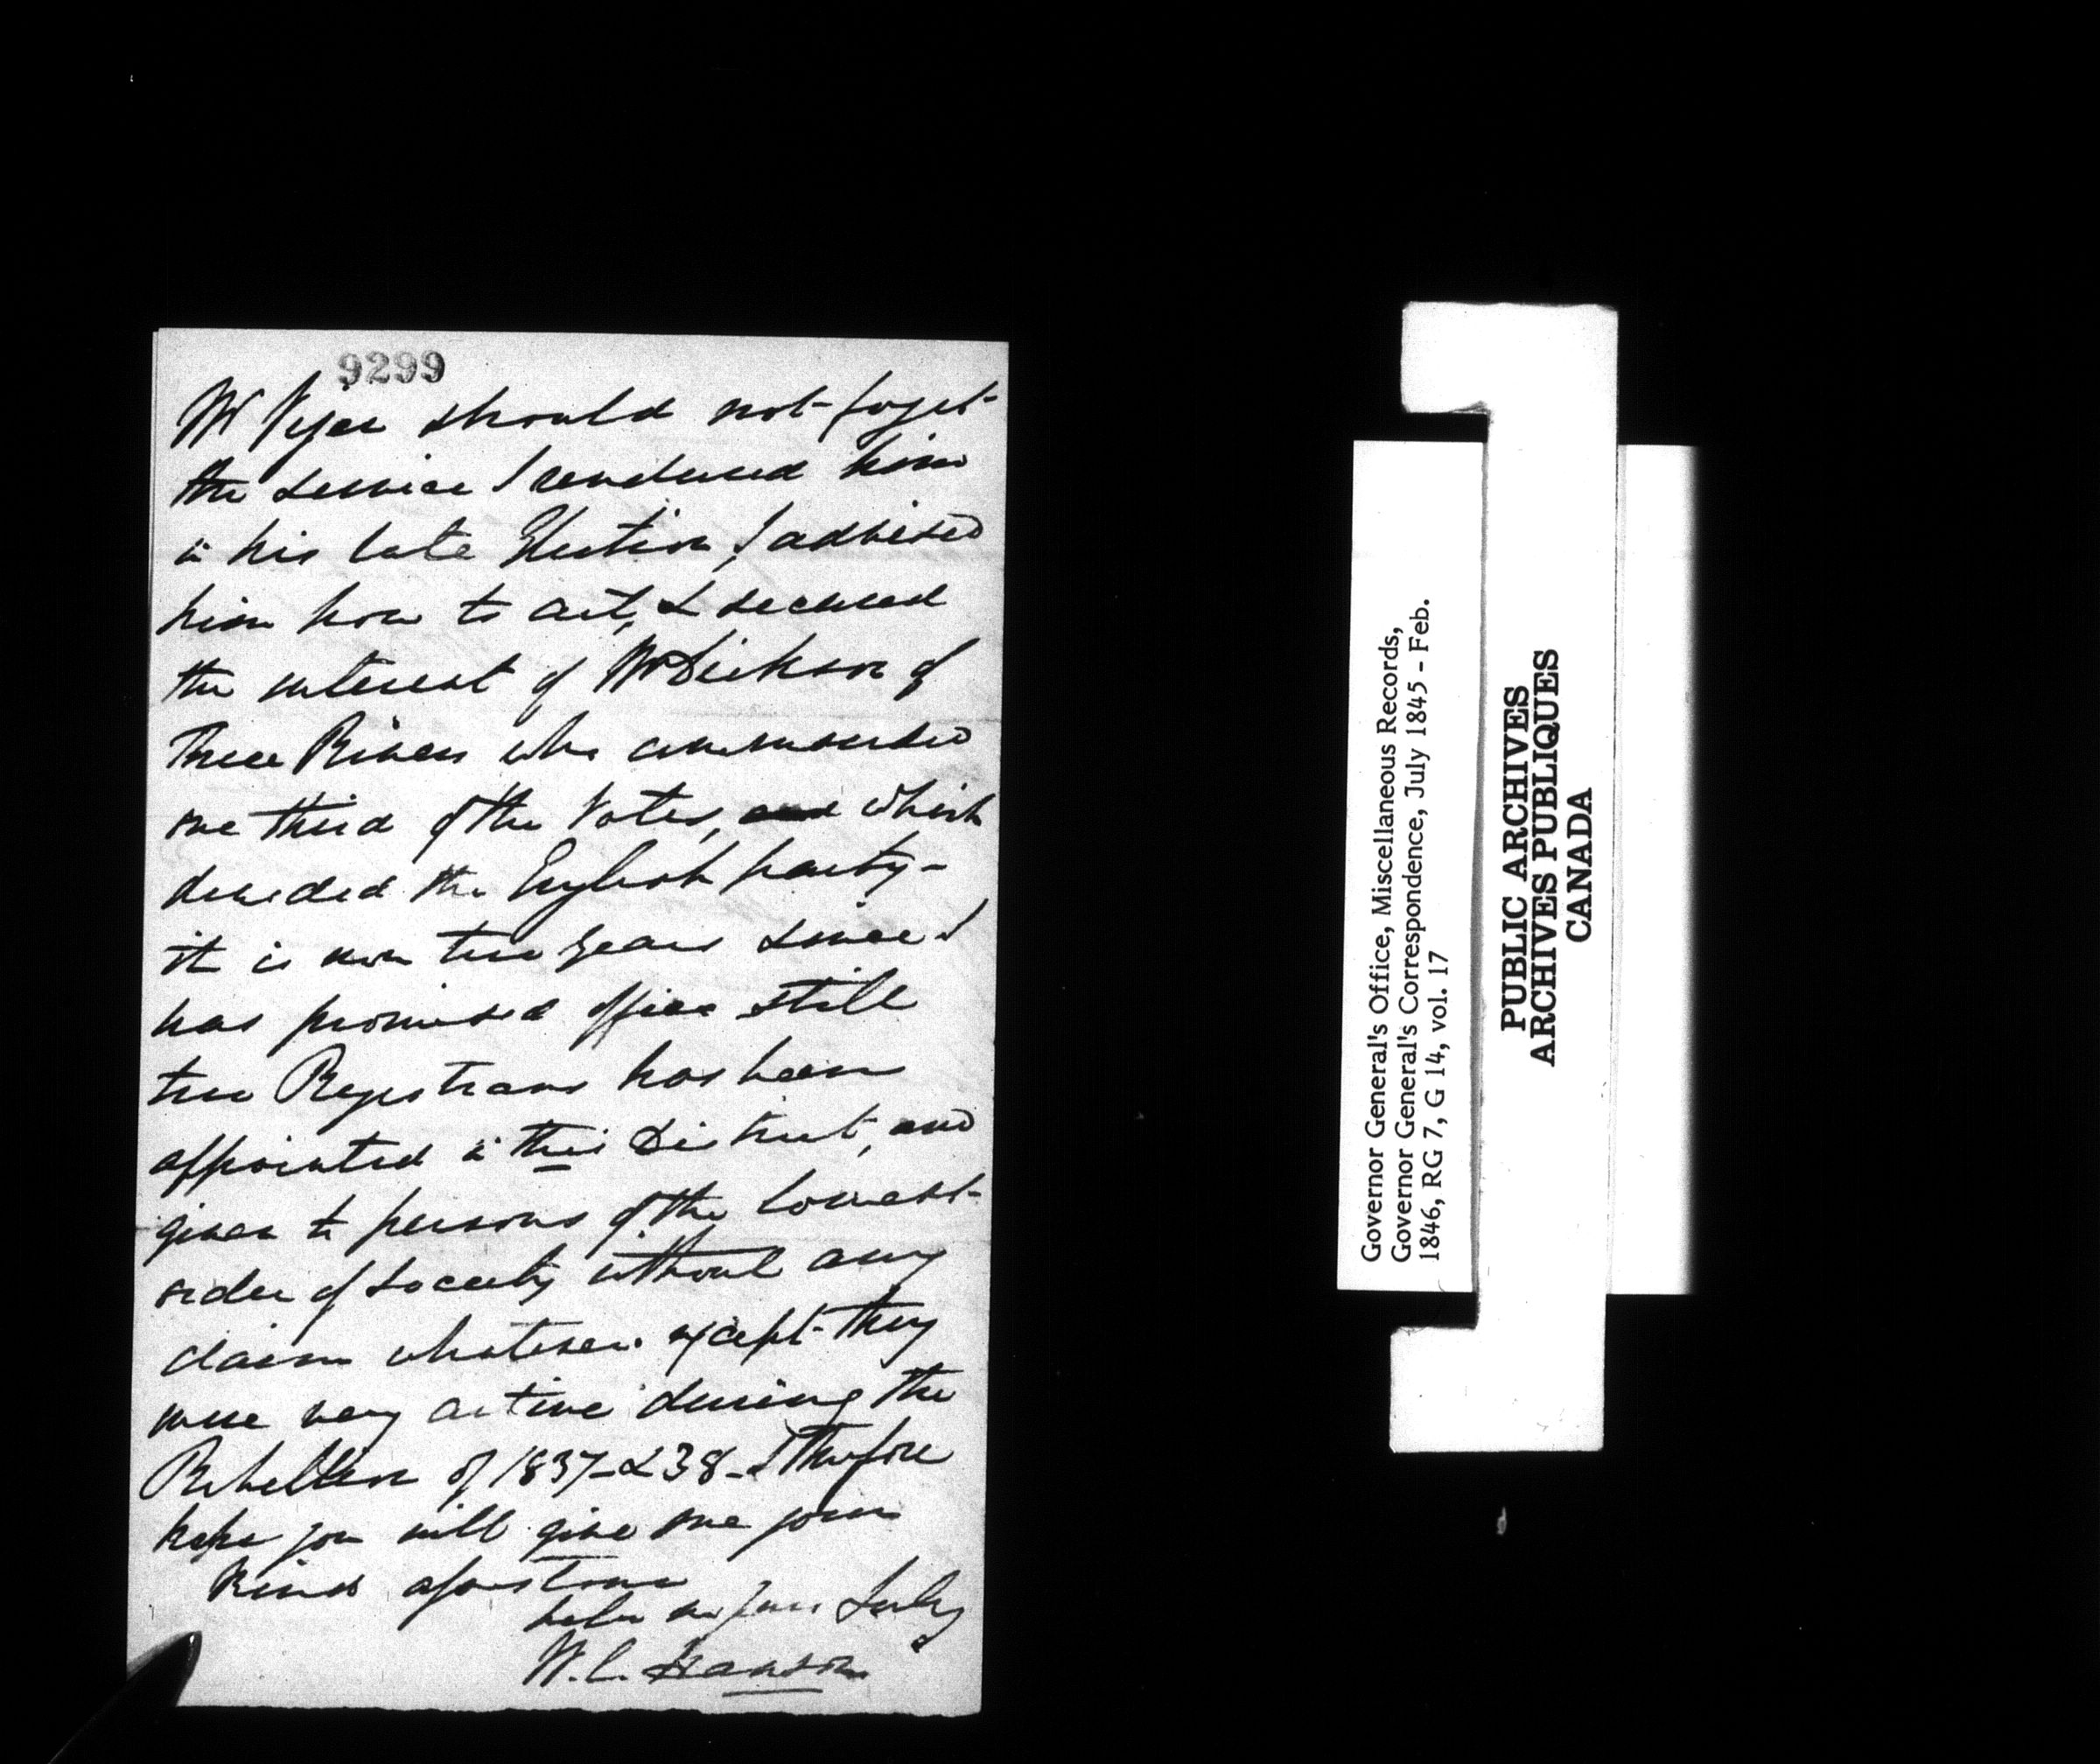 9299
Mr Viger should not forget
the service I rendered him
in his late Election, I advised
him how to act, & secured
the interest of Mr Dickson of
Three Rivers who commanded
one third of the Votes, and which
decided the English party-
it is now two years since I
was promised office still
two Registrars has been
appointed in this District, and
given to persons of the lowest
order of society without any
claim whatever except they
were very active during the
Rebellion of 1837-&38-I therefore
hope you will give me your
kind
W.C. Hanson
Governor General's Office, Miscellaneous Records,
Governor General's Correspondence, July 1845 - Feb.
1846, RG 7, G 14, vol. 17
PUBLIC ARCHIVES
ARCHIVES PUBLIQUES
CANADA